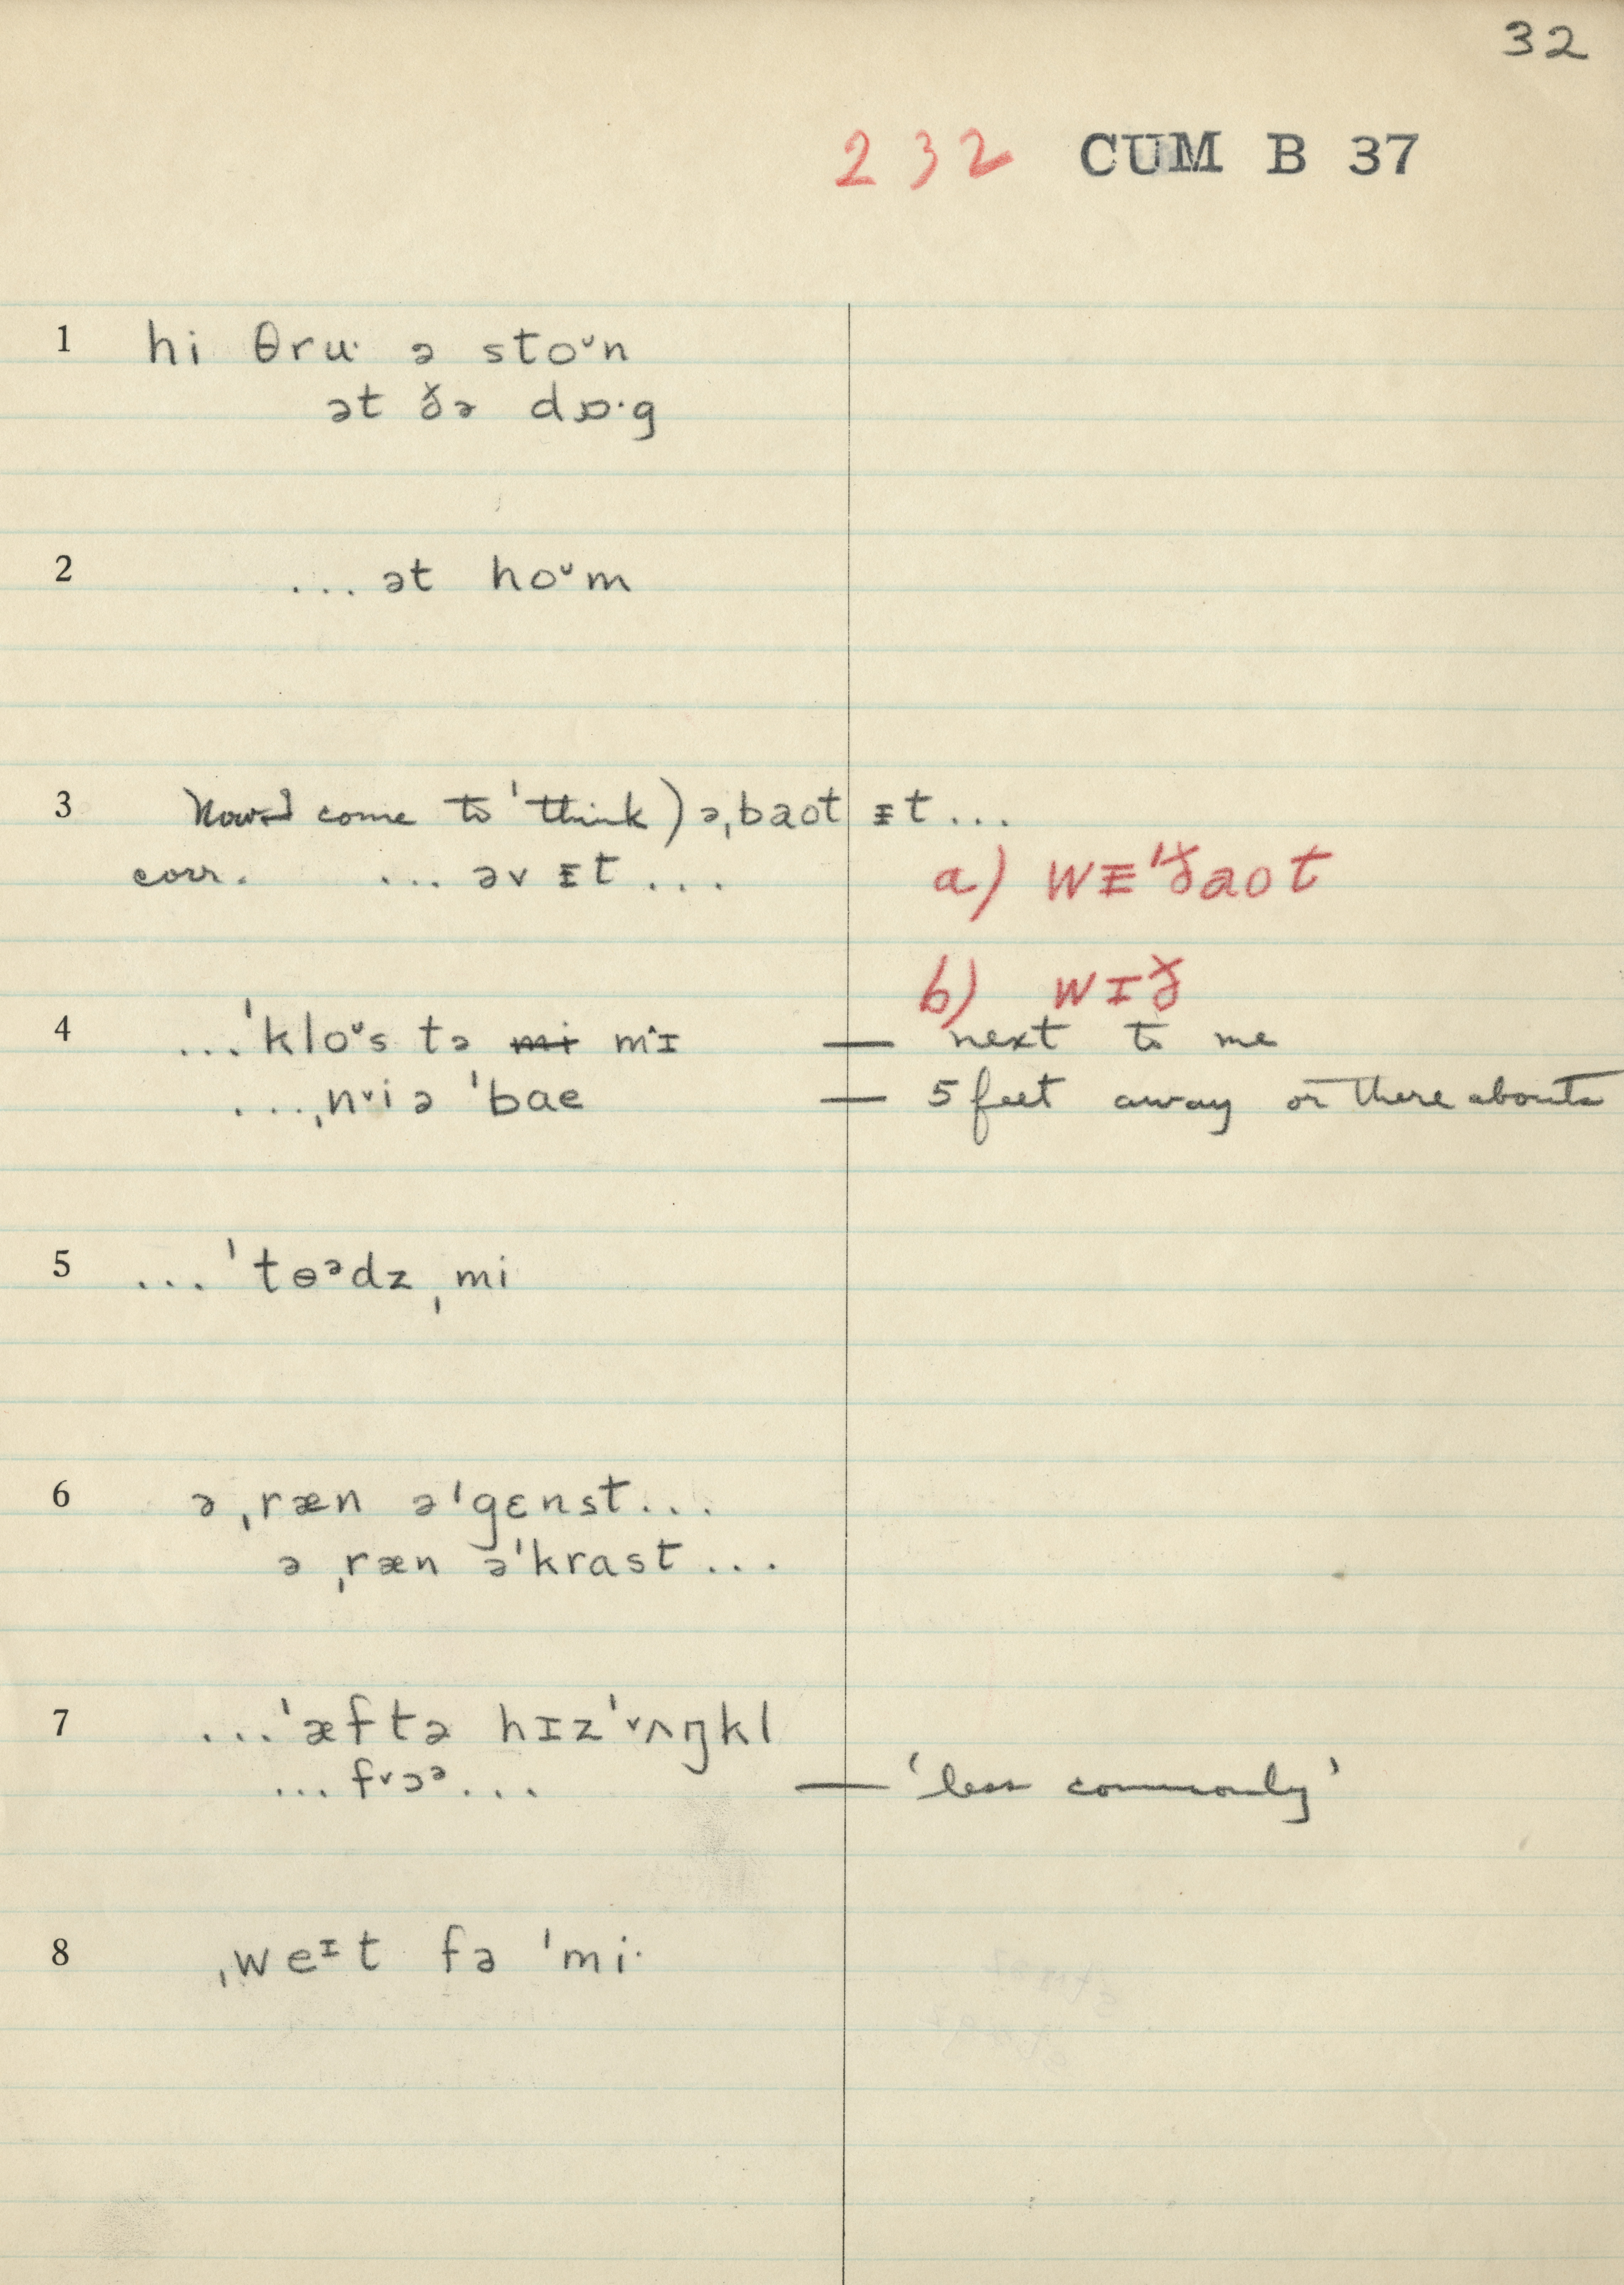 32
232 CUM B 37
1 hi θru· ə stoᵛn
ət ðə dɒ·g
2 ... ət hoᵛm
3 Now I come to 'think) əˌbaot ɪt...
corr. ... əv ɪt...
a) wɪ'ðaot
b) wɪð
4 ...'kloᵛs tə mi mˆɪ — next to me
...ˌnᵛiə 'bae — 5 feet away or there abouts
5 ...'tɵᵊdzˌmi
6 ə ˌræn ə'gɛnst...
ə ˌræn ə'krast...
7 ...'æftə hɪz 'ᵛʌŋkl
... fᵛɔᵊ... — 'less commonly'
8 ˌweᶦt fə 'mi·